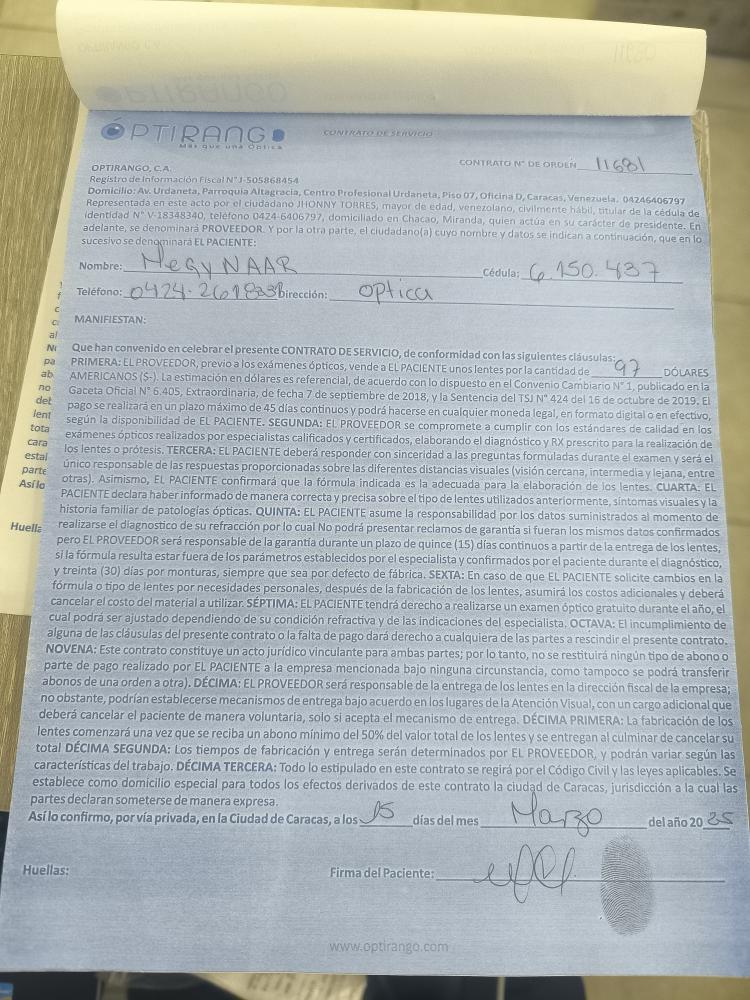 ÓPTIRANGO
Más que una Óptica
CONTRATO DE SERVICIO
CONTRATO N° DE ORDEN 11681
OPTIRANGO, C.A.
Registro de Información Fiscal N°J-505868454
Domicilio: Av. Urdaneta, Parroquia Altagracia, Centro Profesional Urdaneta, Piso 07, Oficina D, Caracas, Venezuela. 04246406797
Representada en este acto por el ciudadano JHONNY TORRES, mayor de edad, venezolano, civilmente hábil, titular de la cédula de
identidad N° V-18348340, teléfono 0424-6406797, domiciliado en Chacao, Miranda, quien actúa en su carácter de presidente. En
adelante, se denominará PROVEEDOR. Y por la otra parte, el ciudadano(a) cuyo nombre y datos se indican a continuación, que en lo
sucesivo se denominará EL PACIENTE:
Nombre: Negy NAAR Cédula: 6.150.437
Teléfono: 0424- Dirección: optica
MANIFIESTAN:
Que han convenido en celebrar el presente CONTRATO DE SERVICIO, de conformidad con las siguientes cláusulas:
PRIMERA: EL PROVEEDOR, previo a los exámenes ópticos, vende a EL PACIENTE unos lentes por la cantidad de 97 DÓLARES
AMERICANOS (S-). La estimación en dólares es referencial, de acuerdo con lo dispuesto en el Convenio Cambiario N° 1, publicado en la
Gaceta Oficial N° 6.405, Extraordinaria, de fecha 7 de septiembre de 2018, y la Sentencia del TSJ N° 424 del 16 de octubre de 2019. El
pago se realizará en un plazo máximo de 45 días continuos y podrá hacerse en cualquier moneda legal, en formato digital o en efectivo,
según la disponibilidad de EL PACIENTE. SEGUNDA: EL PROVEEDOR se compromete a cumplir con los estándares de calidad en los
exámenes ópticos realizados por especialistas calificados y certificados, elaborando el diagnóstico y RX prescrito para la realización de
los lentes o prótesis. TERCERA: EL PACIENTE deberá responder con sinceridad a las preguntas formuladas durante el examen y será el
único responsable de las respuestas proporcionadas sobre las diferentes distancias visuales (visión cercana, intermedia y lejana, entre
otras). Asimismo, EL PACIENTE confirmará que la fórmula indicada es la adecuada para la elaboración de los lentes. CUARTA: EL
PACIENTE declara haber informado de manera correcta y precisa sobre el tipo de lentes utilizados anteriormente, síntomas visuales y la
historia familiar de patologías ópticas. QUINTA: EL PACIENTE asume la responsabilidad por los datos suministrados al momento de
realizarse el diagnostico de su refracción por lo cual No podrá presentar reclamos de garantía si fueran los mismos datos confirmados
pero EL PROVEEDOR será responsable de la garantía durante un plazo de quince (15) días continuos a partir de la entrega de los lentes,
si la fórmula resulta estar fuera de los parámetros establecidos por el especialista y confirmados por el paciente durante el diagnóstico,
y treinta (30) días por monturas, siempre que sea por defecto de fábrica. SEXTA: En caso de que EL PACIENTE solicite cambios en la
fórmula o tipo de lentes por necesidades personales, después de la fabricación de los lentes, asumirá los costos adicionales y deberá
cancelar el costo del material a utilizar. SÉPTIMA: EL PACIENTE tendrá derecho a realizarse un examen óptico gratuito durante el año, el
cual podrá ser ajustado dependiendo de su condición refractiva y de las indicaciones del especialista. OCTAVA: El incumplimiento de
alguna de las cláusulas del presente contrato o la falta de pago dará derecho a cualquiera de las partes a rescindir el presente contrato.
NOVENA: Este contrato constituye un acto jurídico vinculante para ambas partes; por lo tanto, no se restituirá ningún tipo de abono o
parte de pago realizado por EL PACIENTE a la empresa mencionada bajo ninguna circunstancia, como tampoco se podrá transferir
abonos de una orden a otra). DÉCIMA: EL PROVEEDOR será responsable de la entrega de los lentes en la dirección fiscal de la empresa;
no obstante, podrían establecerse mecanismos de entrega bajo acuerdo en los lugares de la Atención Visual, con un cargo adicional que
deberá cancelar el paciente de manera voluntaria, solo si acepta el mecanismo de entrega. DÉCIMA PRIMERA: La fabricación de los
lentes comenzará una vez que se reciba un abono mínimo del 50% del valor total de los lentes y se entregan al culminar de cancelar su
total DÉCIMA SEGUNDA: Los tiempos de fabricación y entrega serán determinados por EL PROVEEDOR, y podrán variar según las
características del trabajo. DÉCIMA TERCERA: Todo lo estipulado en este contrato se regirá por el Código Civil y las leyes aplicables. Se
establece como domicilio especial para todos los efectos derivados de este contrato la ciudad de Caracas, jurisdicción a la cual las
partes declaran someterse de manera expresa.
Así lo confirmo, por vía privada, en la Ciudad de Caracas, a los 15 días del mes Marzo del año 2025
Huellas:
Firma del Paciente:
www.optirango.com